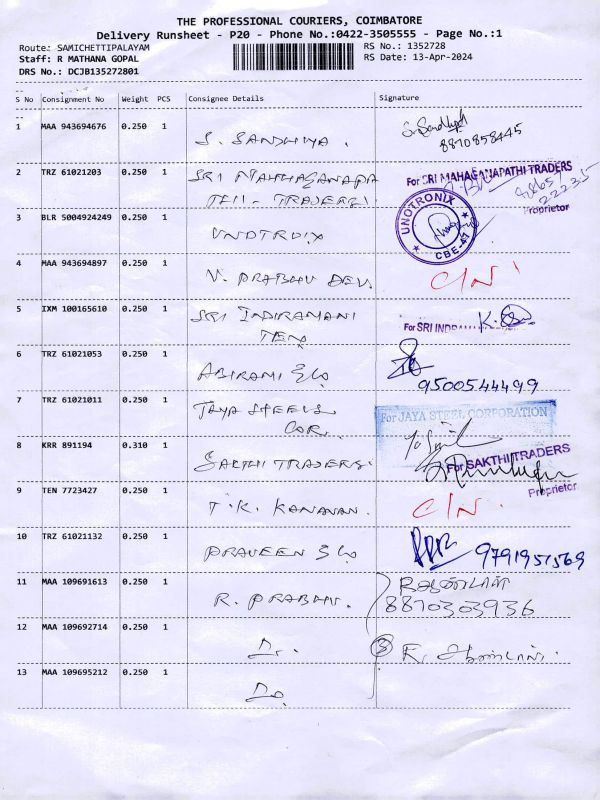 THE PROFESSIONAL COURIERS, COIMBATORE
Delivery Runsheet - P20 - Phone No.:0422-3505555 - Page No.:1
Route: SAMICHETTIPALAYAM RS No.: 1352728
Staff: R MATHANA GOPAL RS Date: 13-Apr-2024
DRS No.: DCJB135272801
S No Consignment No Weight PCS Consignee Details Signature
1 MAA 943694676 0.250 1 S. SANDHYA.
8870858445
2 TRZ 61021203 0.250 1 SRI MAHAGANAPA
THI - TRADERS
For SRI MAHAGANAPATHI TRADERS
Proprietor
3 BLR 5004924249 0.250 1 UNOTRONIX
UNOTRONIX
CBE-47
4 MAA 943694897 0.250 1 V. PRABHU DEV. C/N
5 IXM 100165610 0.250 1 SRI INDIRAMANI
TEX
For SRI INDRAMANI
6 TRZ 61021053 0.250 1 ABIRAMI
9500544499
7 TRZ 61021011 0.250 1 JAYA STEELS
COR.
For JAYA STEEL CORPORATION
8 KRR 891194 0.310 1 SAKTHI TRADERS.
For SAKTHI TRADERS
Proprietor
9 TEN 7723427 0.250 1 T.K. KANNAN. C/N.
10 TRZ 61021132 0.250 1 PRAVEEN 9791951569
11 MAA 109691613 0.250 1 R. PRABHU.
8870303936
12 MAA 109692714 0.250 1 Do. 3
13 MAA 109695212 0.250 1 Do